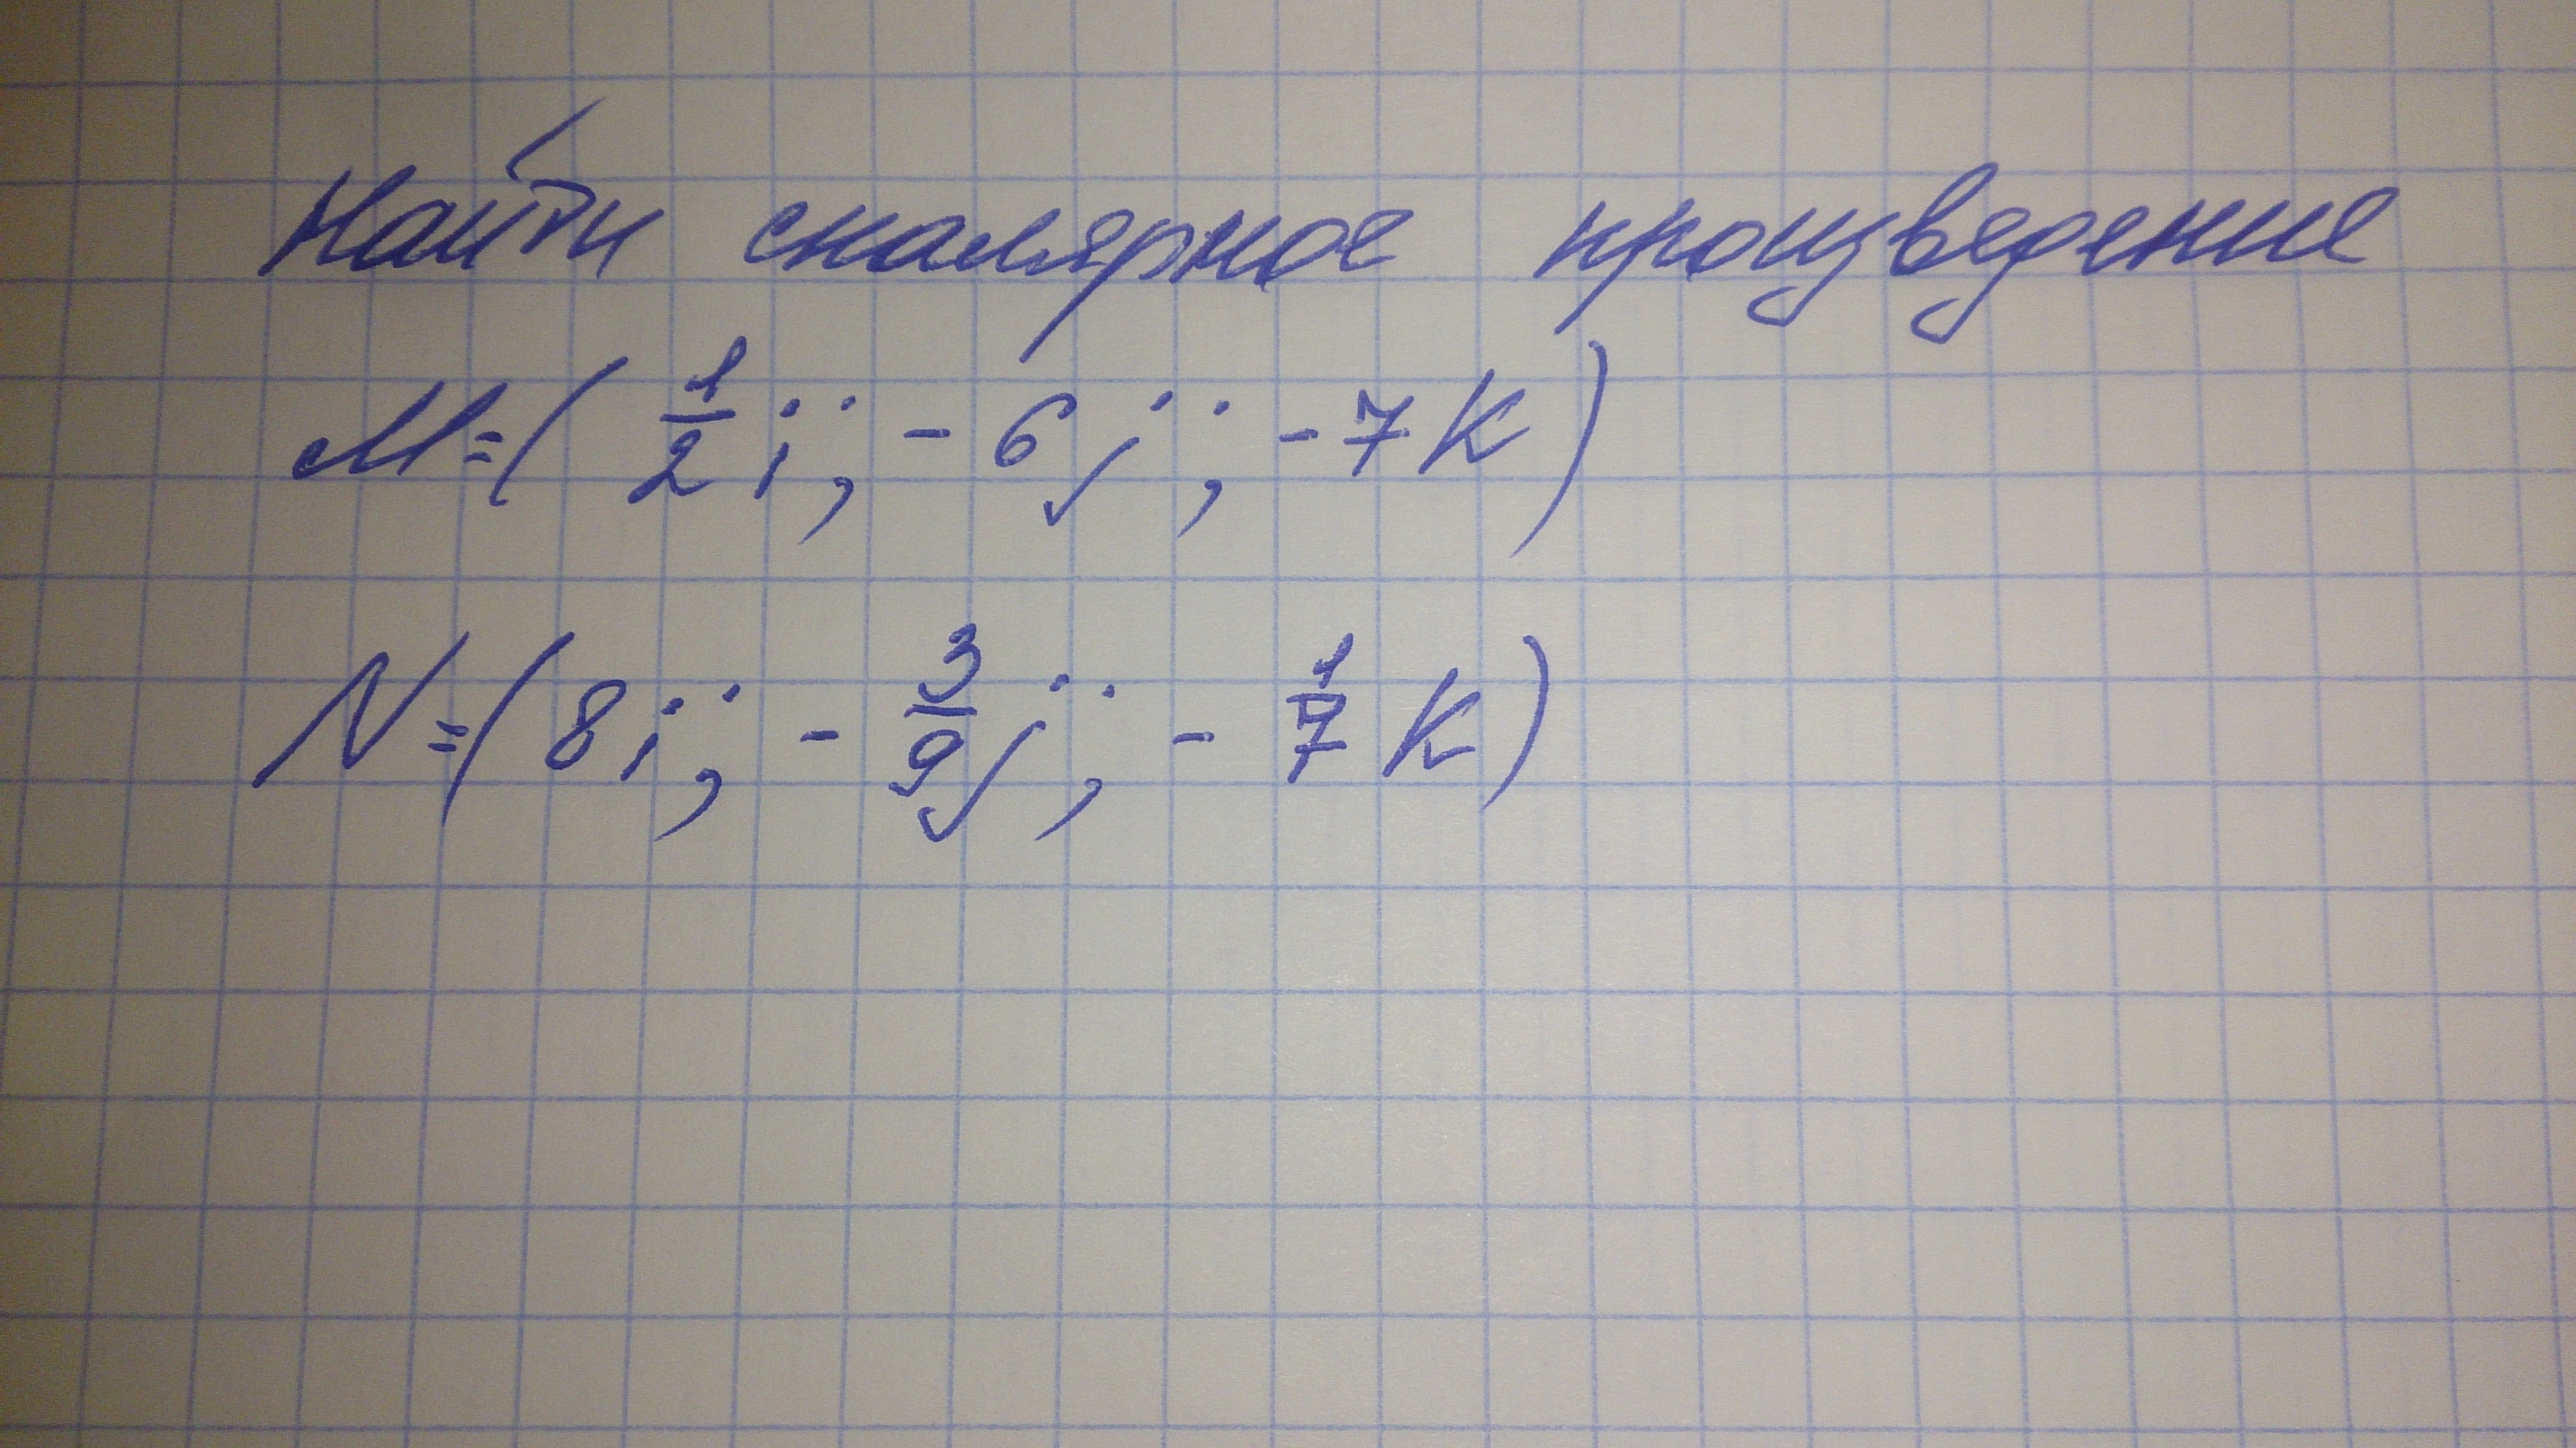 Найти скалярное произведение
M=( 1/2 i; - 6j; -7k)
N=(8i; - 3/9 j; - 1/7 k)